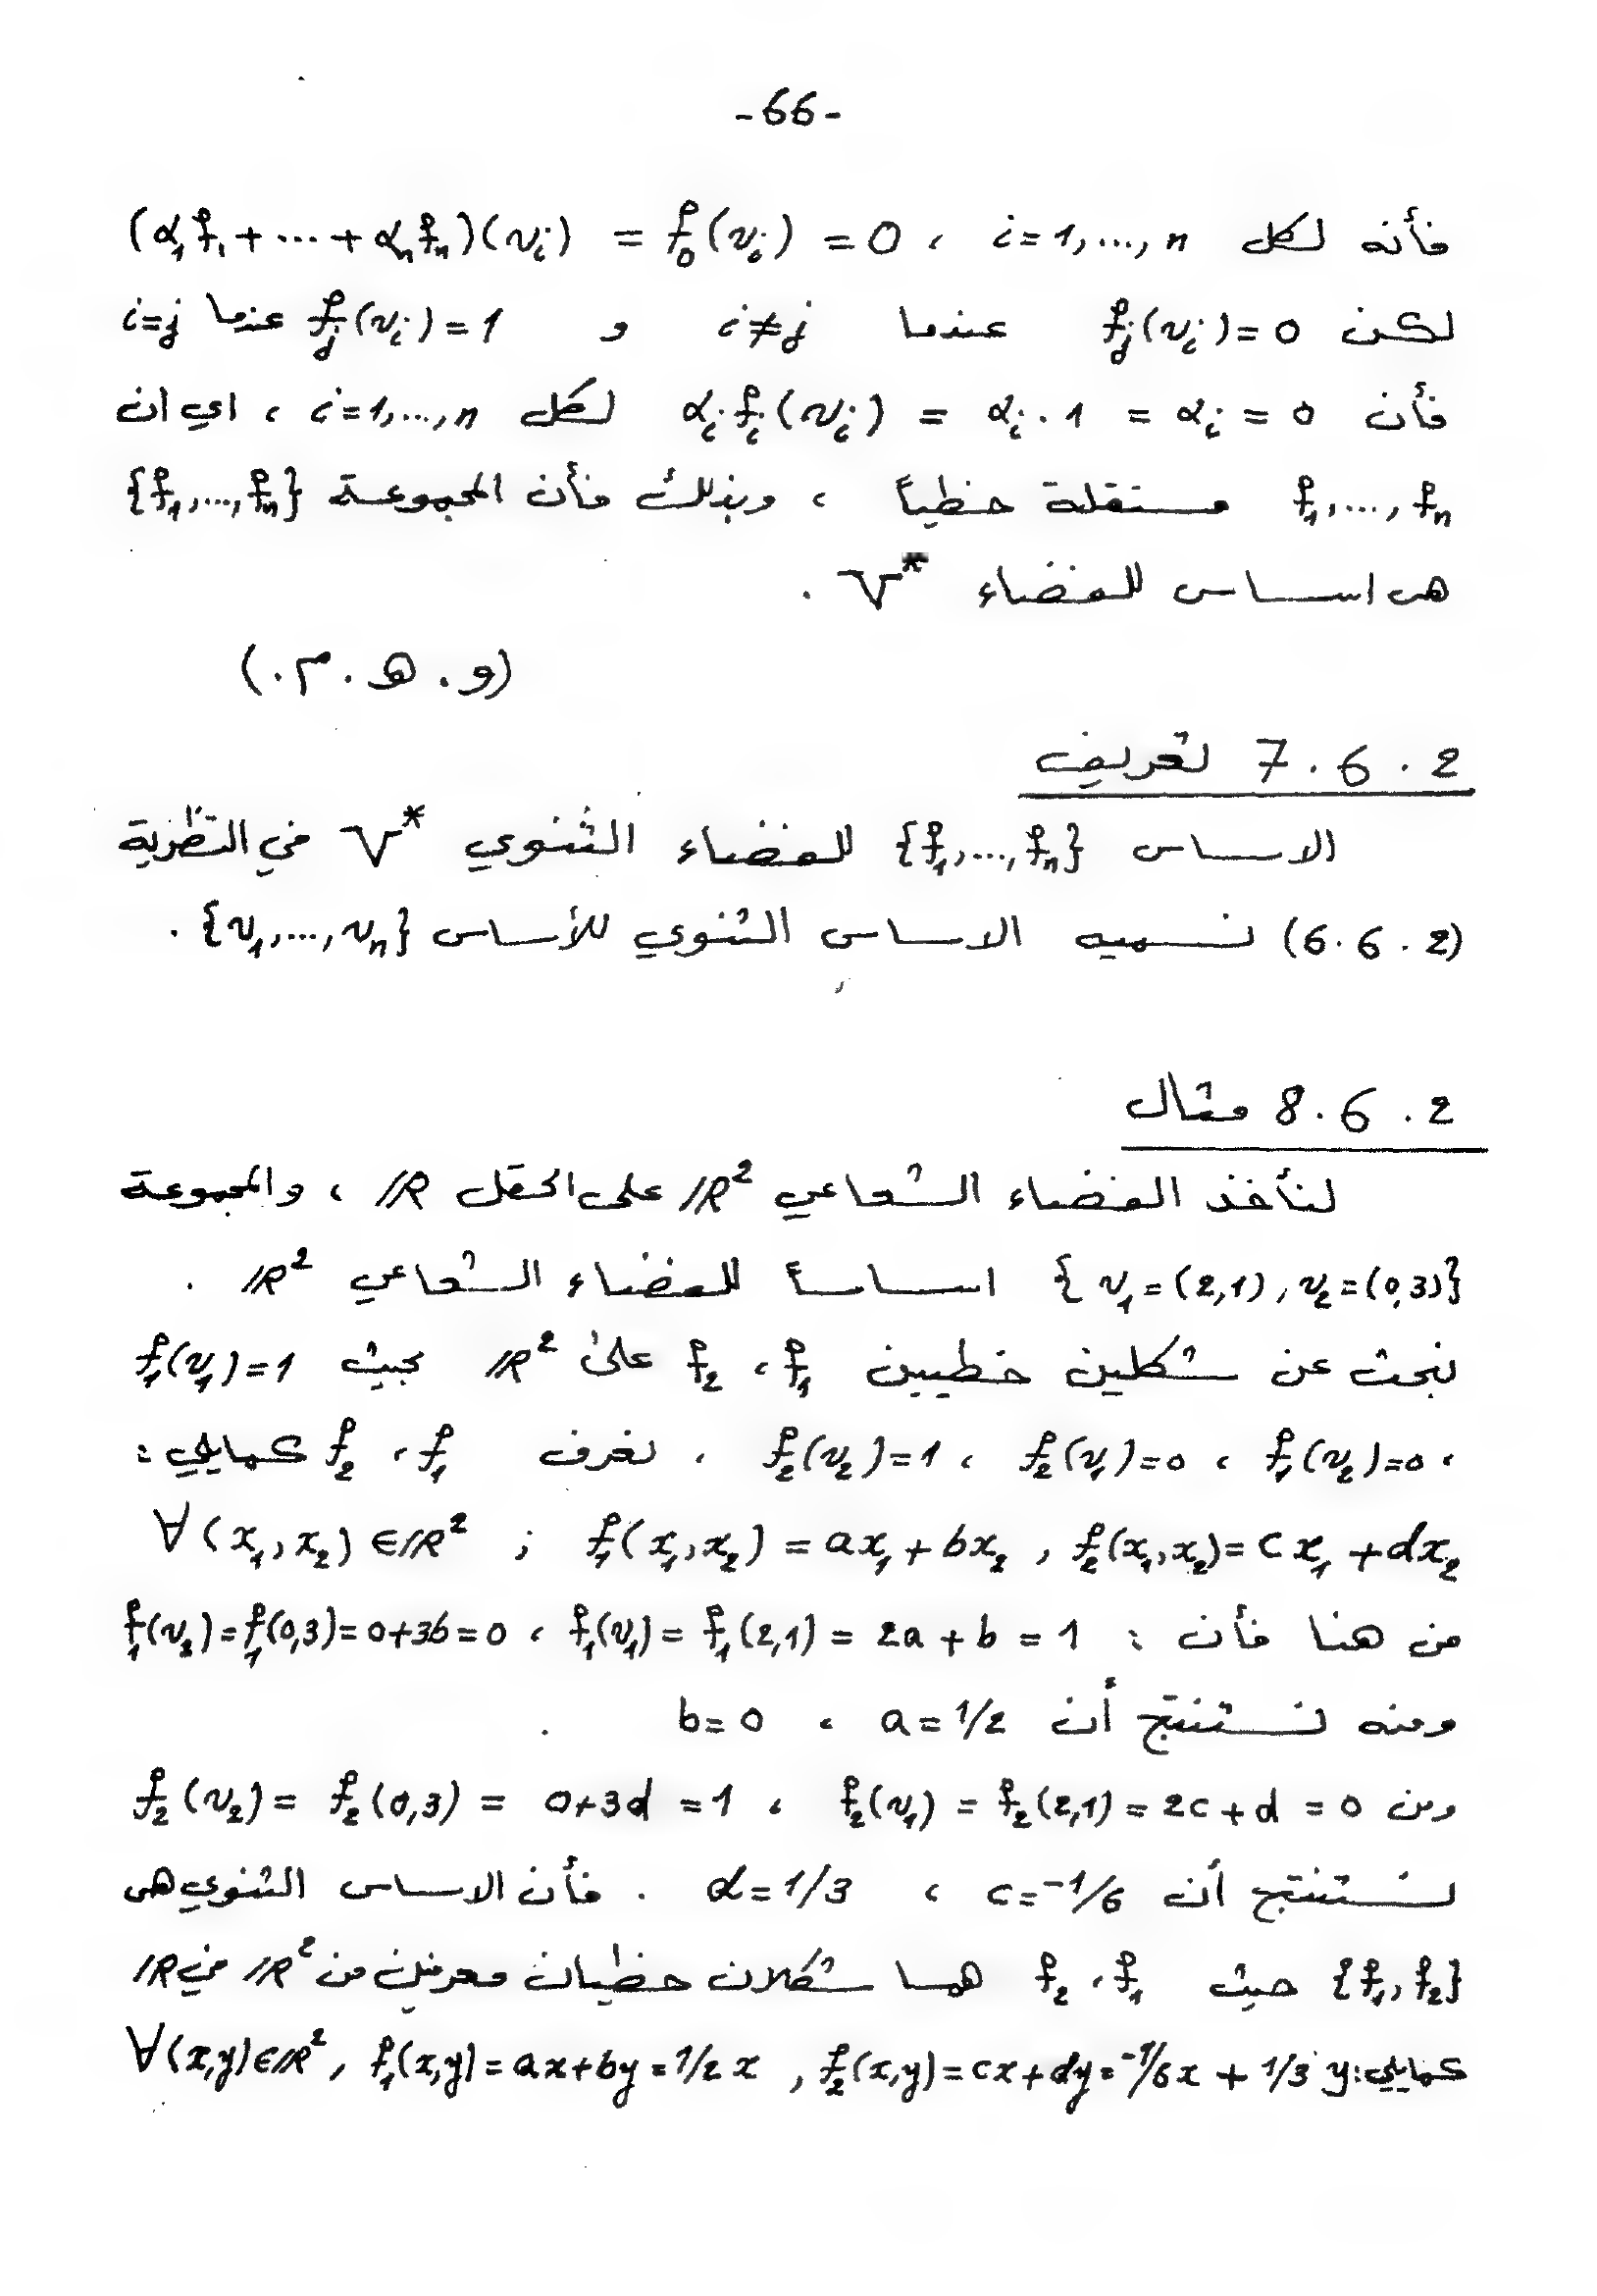 -66-
فأنه لكل i=1,...,n ، (α₁f₁+...+αₙfₙ)(vᵢ) = f₀(vᵢ) = 0
لكن fⱼ(vᵢ)=0 عندما i≠j و fⱼ(vᵢ)=1 عندما i=j
فأن αᵢfᵢ(vᵢ) = αᵢ.1 = αᵢ = 0 لكل i=1,...,n ، اي ان
f₁,...,fₙ مستقلة خطياً ، وبذلك فأن المجموعة {f₁,...,fₙ}
هي اساس للفضاء V* .
(و.هـ.م.)
7.6.2 تعريف
الاساس {f₁,...,fₙ} للفضاء الثنوي V* في النظرية
(6.6.2) نسميه الاساس الثنوي للأساس {v₁,...,vₙ} .
8.6.2 مثال
لنأخذ الفضاء الشعاعي ℝ² على الحقل ℝ ، والمجموعة
{v₁=(2,1), v₂=(0,3)} اساساً للفضاء الشعاعي ℝ² .
نبحث عن شكلين خطيين f₁ ، f₂ على ℝ² بحيث f₁(v₁)=1
، f₁(v₂)=0 ، f₂(v₁)=0 ، f₂(v₂)=1 . نعرف f₁ ، f₂ كمايلي :
∀(x₁,x₂)∈ℝ² ; f₁(x₁,x₂)=ax₁+bx₂ , f₂(x₁,x₂)=cx₁+dx₂
من هنا فأن : f₁(v₁)=f₁(2,1)=2a+b=1 ، f₁(v₂)=f₁(0,3)=0+3b=0
ومنه نستنتج أن a=1/2 ، b=0 .
ومن f₂(v₁)=f₂(2,1)=2c+d=0 ، f₂(v₂)=f₂(0,3)=0+3d=1
نستنتج أن c=-1/6 ، d=1/3 . فأن الاساس الثنوي هي
{f₁,f₂} حيث f₁ ، f₂ هما شكلان خطيان معرفين من ℝ² في ℝ
كمايلي: ∀(x,y)∈ℝ², f₁(x,y)=ax+by=1/2x , f₂(x,y)=cx+dy=-1/6x+1/3y